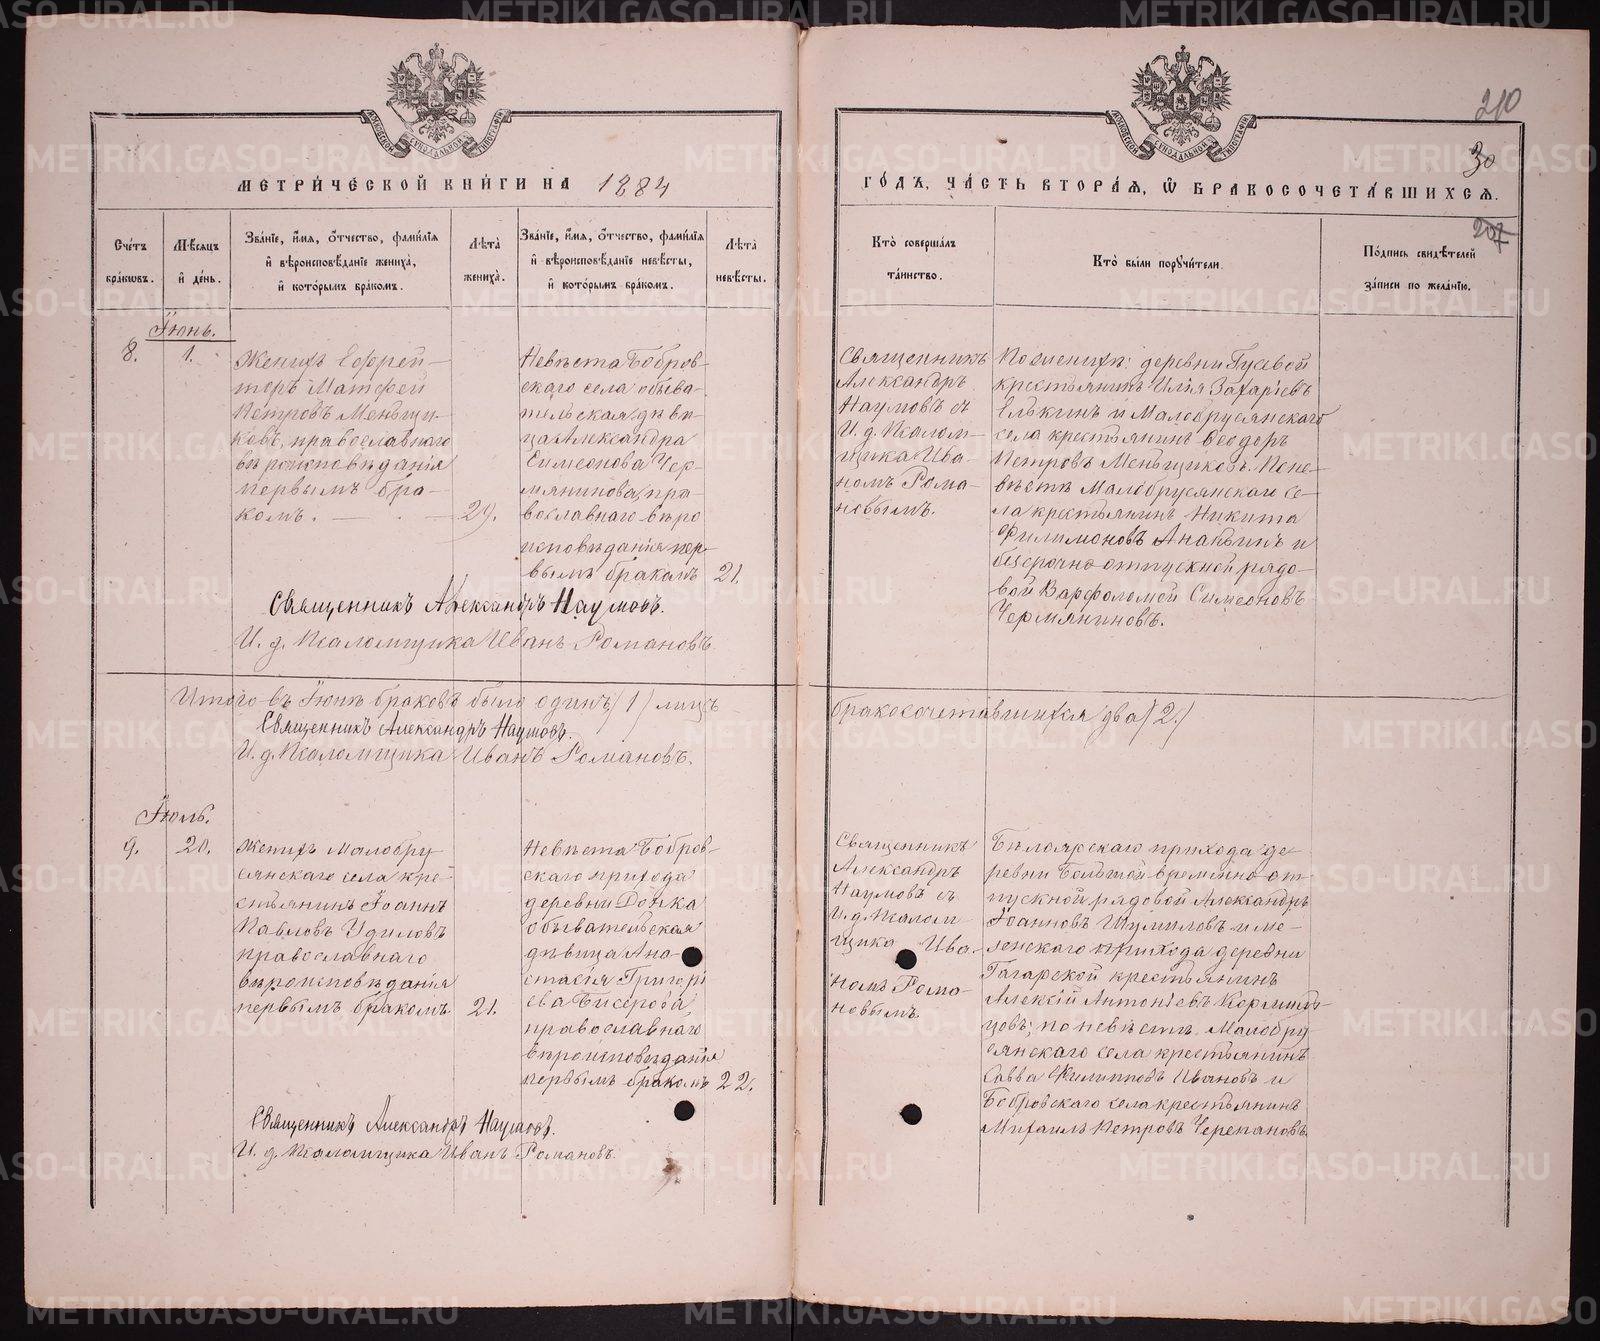 МЕТРИ́ЧЕСКОЙ КНИ́ГИ НА 1884
ГО́ДЪ, ЧА́СТЬ ВТОРА́Я, Ѿ БРАКОСОЧЕТА́ВШИХСЯ.
210
30
207
Сче́тъ бра́кѡвъ.
Мѣ́сяцъ и҆ де́нь.
Зва́нїе, и҆́мя, ѻ҆́тчество, фами́лїя и҆ вѣроисповѣ́данїе жениха̀, и҆ кото́рымъ бра́комъ.
Лѣ́та жениха̀.
Зва́нїе, и҆́мя, ѻ҆́тчество, фами́лїя и҆ вѣроисповѣ́данїе невѣ́сты, и҆ кото́рымъ бра́комъ.
Лѣ́та невѣ́сты.
Кто̀ соверша́лъ та́инство.
Кто̀ бы́ли порꙋчи́тели.
По́дпись свидѣ́телей за́писи по жела́нїю.
Іюнь.
8.
1.
Женихъ Ефрей-
торъ Матфей
Петровъ Меньщи-
ковъ, православнаго
вѣроисповѣданія
первымъ бра-
комъ.
29.
Невѣста Бобров-
скаго села обыва-
тельская дѣви-
ца Александра
Симеонова Чер-
мянинова, пра-
вославнаго вѣро
исповѣданія пер-
вымъ бракомъ
21.
Священникъ
Александръ
Наумовъ съ
И. д. Псалом-
щика Ива-
номъ Рома-
новымъ.
По женихѣ: деревни Гусевой
крестьянинъ Илія Захаріевъ
Елькинъ и Малобрусянскаго
села крестьянинъ Ѳеодоръ
Петровъ Меньщиковъ. По не-
вѣстѣ Малобрусянскаго се-
ла крестьянинъ Никита
Филимоновъ Ананьинъ и
безсрочно отпускной рядо-
вой Варфоломей Симеоновъ
Чермяниновъ.
Священникъ Александръ Наумовъ.
И. д. Псаломщика Иванъ Романовъ.
Итого въ Іюнѣ браковъ было одинъ /1/ лицъ
бракосочетавшихся два /2./
Священникъ Александръ Наумовъ.
И. д. Псаломщика Иванъ Романовъ.
Іюль.
9.
20.
Женихъ Малобру-
сянскаго села кре-
стьянинъ Іоаннъ
Павловъ Удиловъ
православнаго
вѣроисповѣданія
первымъ бракомъ.
21.
Невѣста Бобров-
скаго прихода
деревни
обывательская
дѣвица Ана-
стасія Григорі
ева Бисерова,
православнаго
вѣроисповѣданія
первымъ бракомъ
22.
Священникъ
Александръ
Наумовъ съ
И. д. Псалом-
щика Ива-
номъ Рома-
новымъ.
Бѣлоярскаго прихода де-
ревни Большой временно-от-
пускной рядовой Александръ
Іоанновъ Шумиловъ и ме-
зенскаго прихода деревни
Гагарской крестьянинъ
Алексій Антоніевъ Кормиль-
цовъ; по невѣстѣ. Малобру-
сянскаго села крестьянинъ
Савва Филипповъ Ивановъ и
Бобровскаго села крестьянинъ
Михаилъ Петровъ Черепановъ.
Священникъ Александръ Наумовъ.
И. д. Псаломщика Иванъ Романовъ.
METRIKI.GASO-URAL.RU